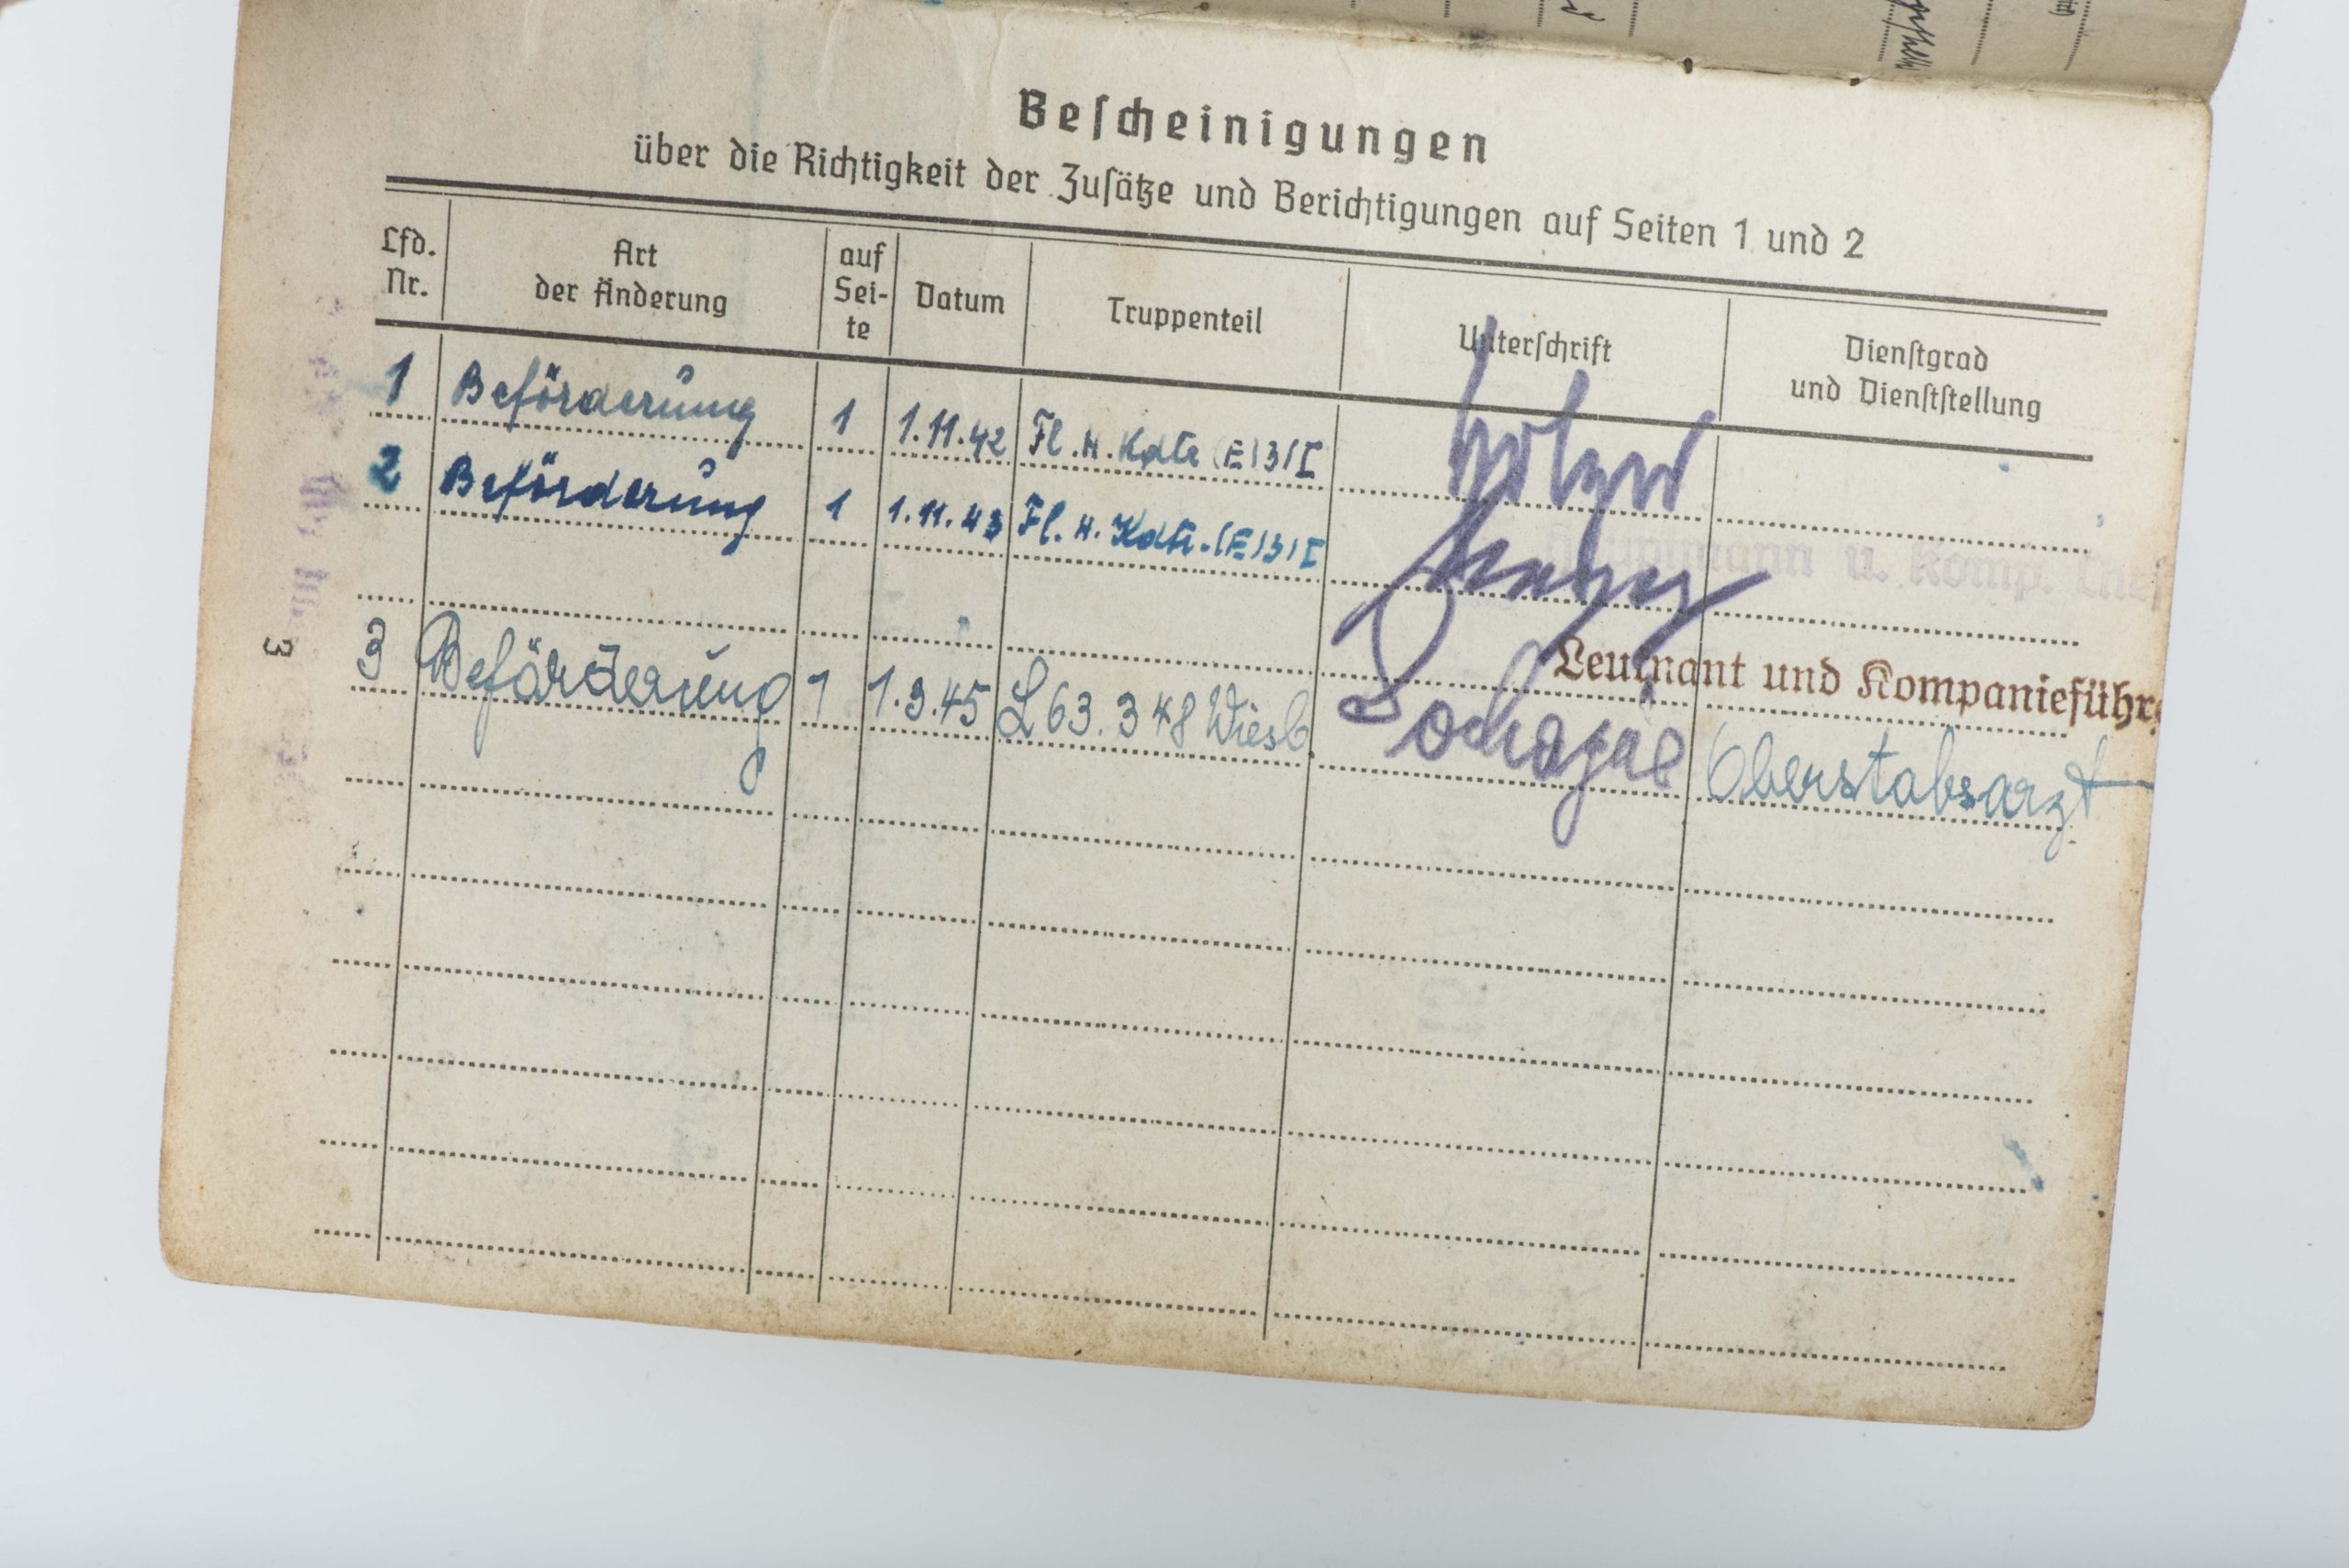 Bescheinigungen
über die Richtigkeit der Zusätze und Berichtigungen auf Seiten 1 und 2
Lfd. Nr. Art der Änderung auf Sei-te Datum Truppenteil Unterschrift Dienstgrad und Dienststellung
1 Beförderung 1 1.11.42 Fl.H.Kdtr (E)3/I
2 Beförderung 1 1.11.43 Fl.H.Kdtr.(E)3/I
Hauptmann u. Komp.
Leutnant und Kompanieführ
3 Beförderung 1 1.9.45 L63.348 Wiesb. Oberstabsarzt
3